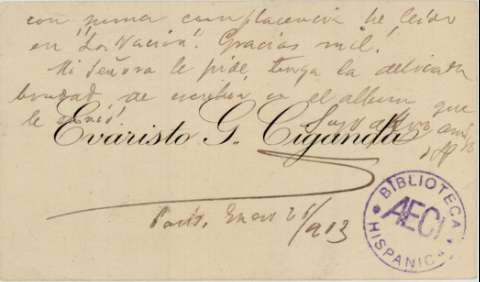 con suma complacencia he leído
en "La Nación". Gracias mil.
Mi señora le pide, tenga la delicada
bondad de escribir en el album que
le envió.
Evaristo G. Ciganda
Suyo
París, Enero 26/913
BIBLIOTECA
AECI
HISPANICA